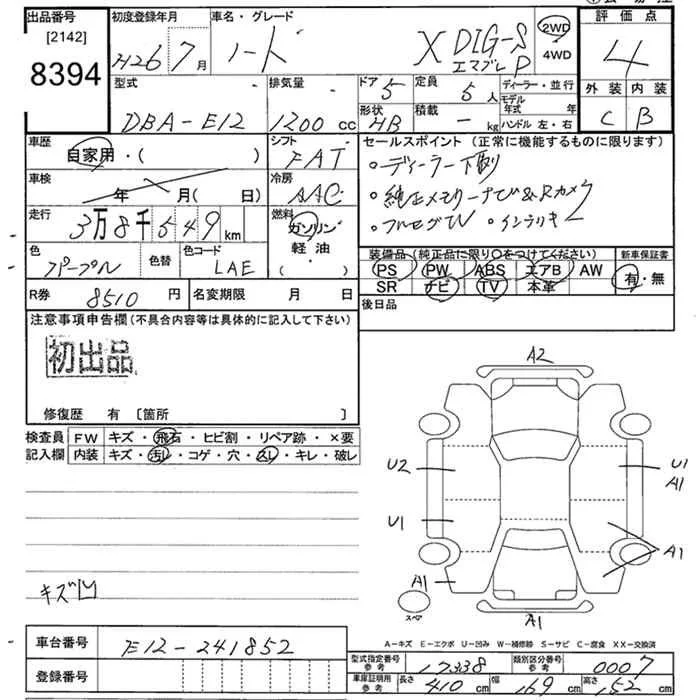 出品番号
[2142]
8394
初度登録年月
H26 7 月
車名・グレード
ノート X DIG-S
エマブレP
2WD
4WD
評価点
4
外装 内装
C B
型式
DBA-E12
排気量
1200 cc
ドア 5
定員 5 人
形状 HB
積載 - kg
ディーラー・並行
モデル年式 年
ハンドル 左・右
車歴
自家用・( )
シフト
FAT
車検
年 月( 日)
冷房
AAC
走行
3万8千549 km
燃料
ガソリン
軽・油
・( )
色
パープル
色替
色コード
LAE
R券 8510 円
名変期限 月 日
セールスポイント(正常に機能するものに限ります)
・ディーラー下取
・純正メモリーナビ&Rカメラ
・フルセグTV ・インテリキ
装備品(純正品に限り○をつけてください)
PS PW ABS エアB AW
SR ナビ TV 本革
新車保証書
有・無
後日品
注意事項申告欄(不具合内容等は具体的に記入して下さい)
初出品
修復歴 有 [箇所 ]
検査員
記入欄
FW キズ・飛石・ヒビ割・リペア跡・×要
内装 キズ・汚レ・コゲ・穴・スレ・キレ・破レ
キズ凹
A2
U2
U1
A1
U1
A1
A1
A1
スペア
車台番号 E12-241852
登録番号
A-キズ E-エクボ U-凹み W-補修跡 S-サビ C-腐食 XX-交換済
型式指定番号
参考
17338
類別区分番号
参考
0007
車庫証明用
参考
長さ 410 cm
幅 169 cm
高さ 152 cm